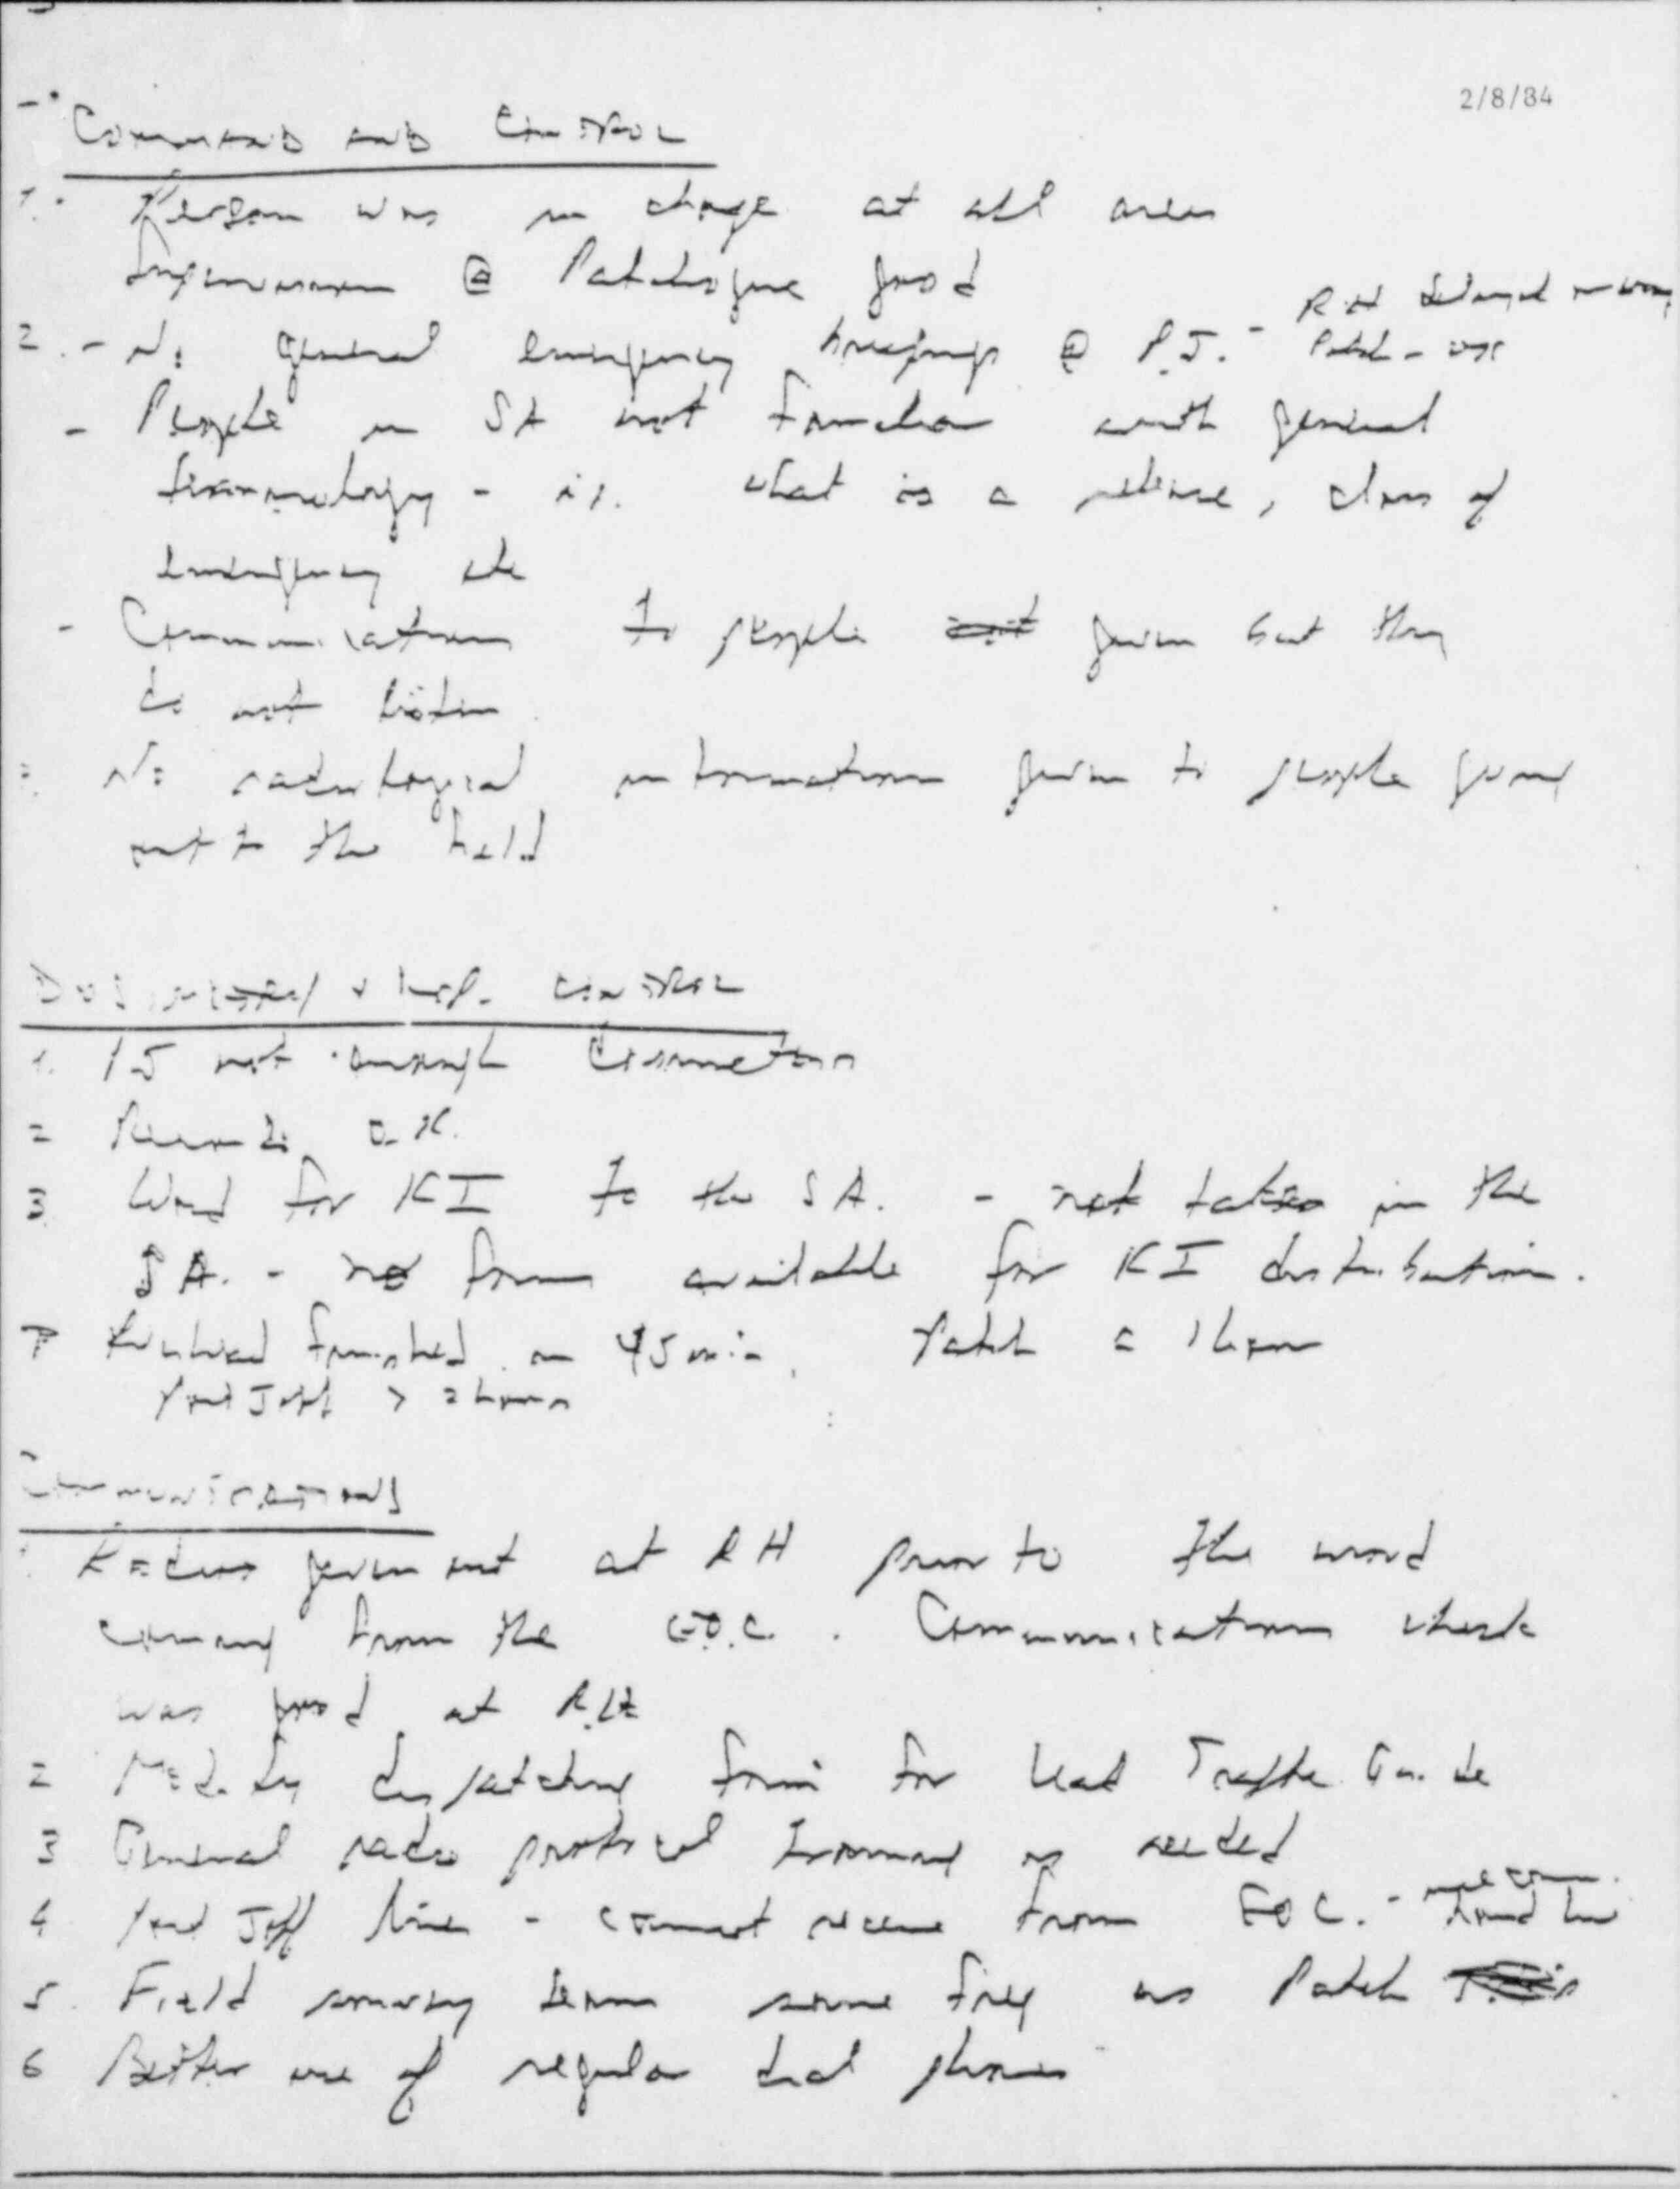 2/8/84
COMMAND AND CONTROL
1. Person was in charge at all areas
Supervision @ Patchogue good
RH delayed
2. - No general emergency briefings @ P.J. - Patch -
- People in SA not familiar with general
terminology - ie. what is a release, class of
emergency etc
- Communications to people given but they
do not listen
No radiological information given to people going
out to the field
Dosimetry & Exp. CONTROL
1. PJ not enough Dosimeters
2 Records O.K.
3 Word for KI to the SA. - not taken in the
SA. - no forms available for KI distribution.
Riverhead finished in 45 min, Patch 2 1 hour
Port Jeff > 2 hours
COMMUNICATIONS
Radios given out at RH prior to the word
coming from the E.O.C. Communications check
was good at RH
2 Modify dispatching form for Lead Traffic Guide
3 General radio protocol training is needed
4 Port Jeff line - cannot receive from EOC. -
5. Field survey team same freq as Patch
6 Better use of regular dial phones